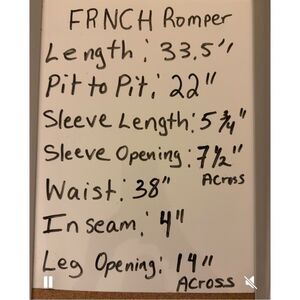 FRNCH Romper
Length: 33.5"
Pit to Pit: 22"
Sleeve Length: 5 3/4"
Sleeve Opening: 7 1/2"
Across
Waist: 38"
Inseam: 4"
Leg Opening: 14"
Across